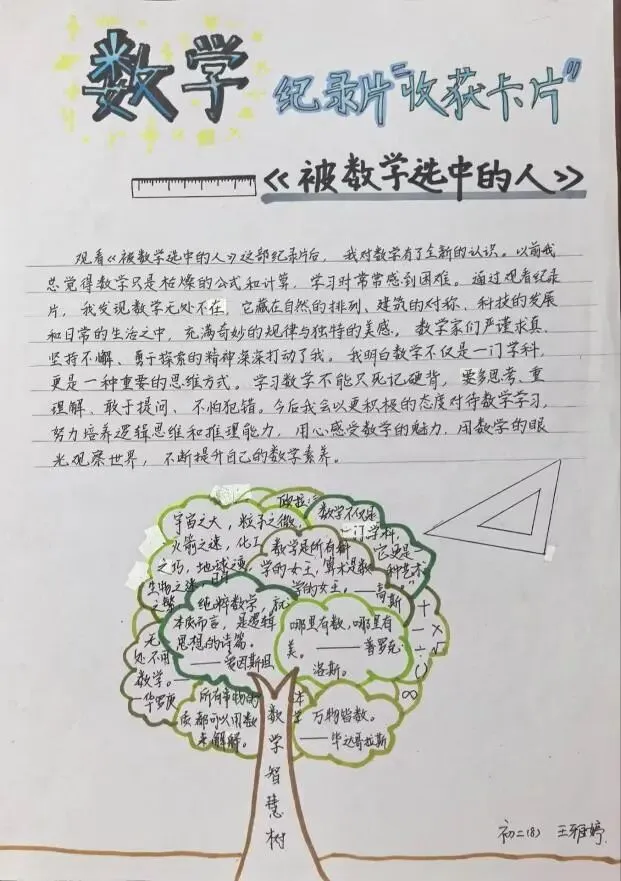 数学
纪录片"收获卡片"
《被数学选中的人》
观看《被数学选中的人》这部纪录片后，我对数学有了全新的认识。以前我
总觉得数学只是枯燥的公式和计算，学习时常常感到困难。通过观看纪录
片，我发现数学无处不在，它藏在自然的排列、建筑的对称、科技的发展
和日常的生活之中，充满奇妙的规律与独特的美感。数学家们严谨求真、
坚持不懈、勇于探索的精神深深打动了我。我明白数学不仅是一门学科，
更是一种重要的思维方式。学习数学不能只死记硬背，要多思考、重
理解、敢于提问、不怕犯错。今后我会以更积极的态度对待数学学习，
努力培养逻辑思维和推理能力，用心感受数学的魅力，用数学的眼
光观察世界，不断提升自己的数学素养。
宇宙之大，粒子之微，
火箭之速，化工
之巧，地球之变，
生物之谜，日用
之繁
无
处不用
数学。——
华罗庚
欧拉：
数学不仅是
一门学科，
它更是
一种艺术
数学是所有科
学的女王，算术是数
学的女王。——高斯
纯粹数学，就
本质而言，是逻辑
思想的诗篇。
——爱因斯坦
哪里有数，哪里有
美。——普罗克
洛斯。
所有事物的本
质都可以用数学
来解释。
万物皆数。
——毕达哥拉斯
+
×
-
√
÷
()
∞
数学智慧树
初二(8) 王雅婷